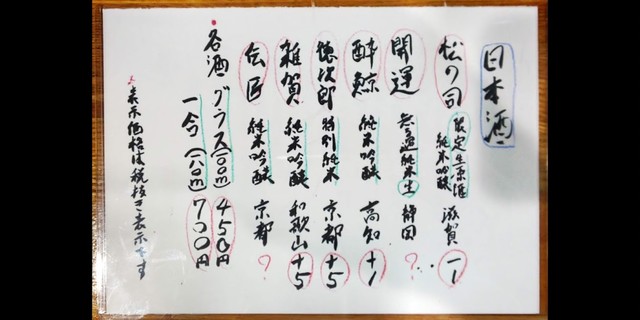 日本酒
松の司 限定生原酒 純米吟醸 滋賀 -1
開運 無濾過純米 生 静岡 ?
酔鯨 純米吟醸 高知 +1
徳次郎 特別純米 京都 +5
雑賀 純米吟醸 和歌山 +5
伝匠 純米吟醸 京都 ?
各酒 グラス(100ml) 450円
一合(180ml) 700円
表示価格は税抜き表示です